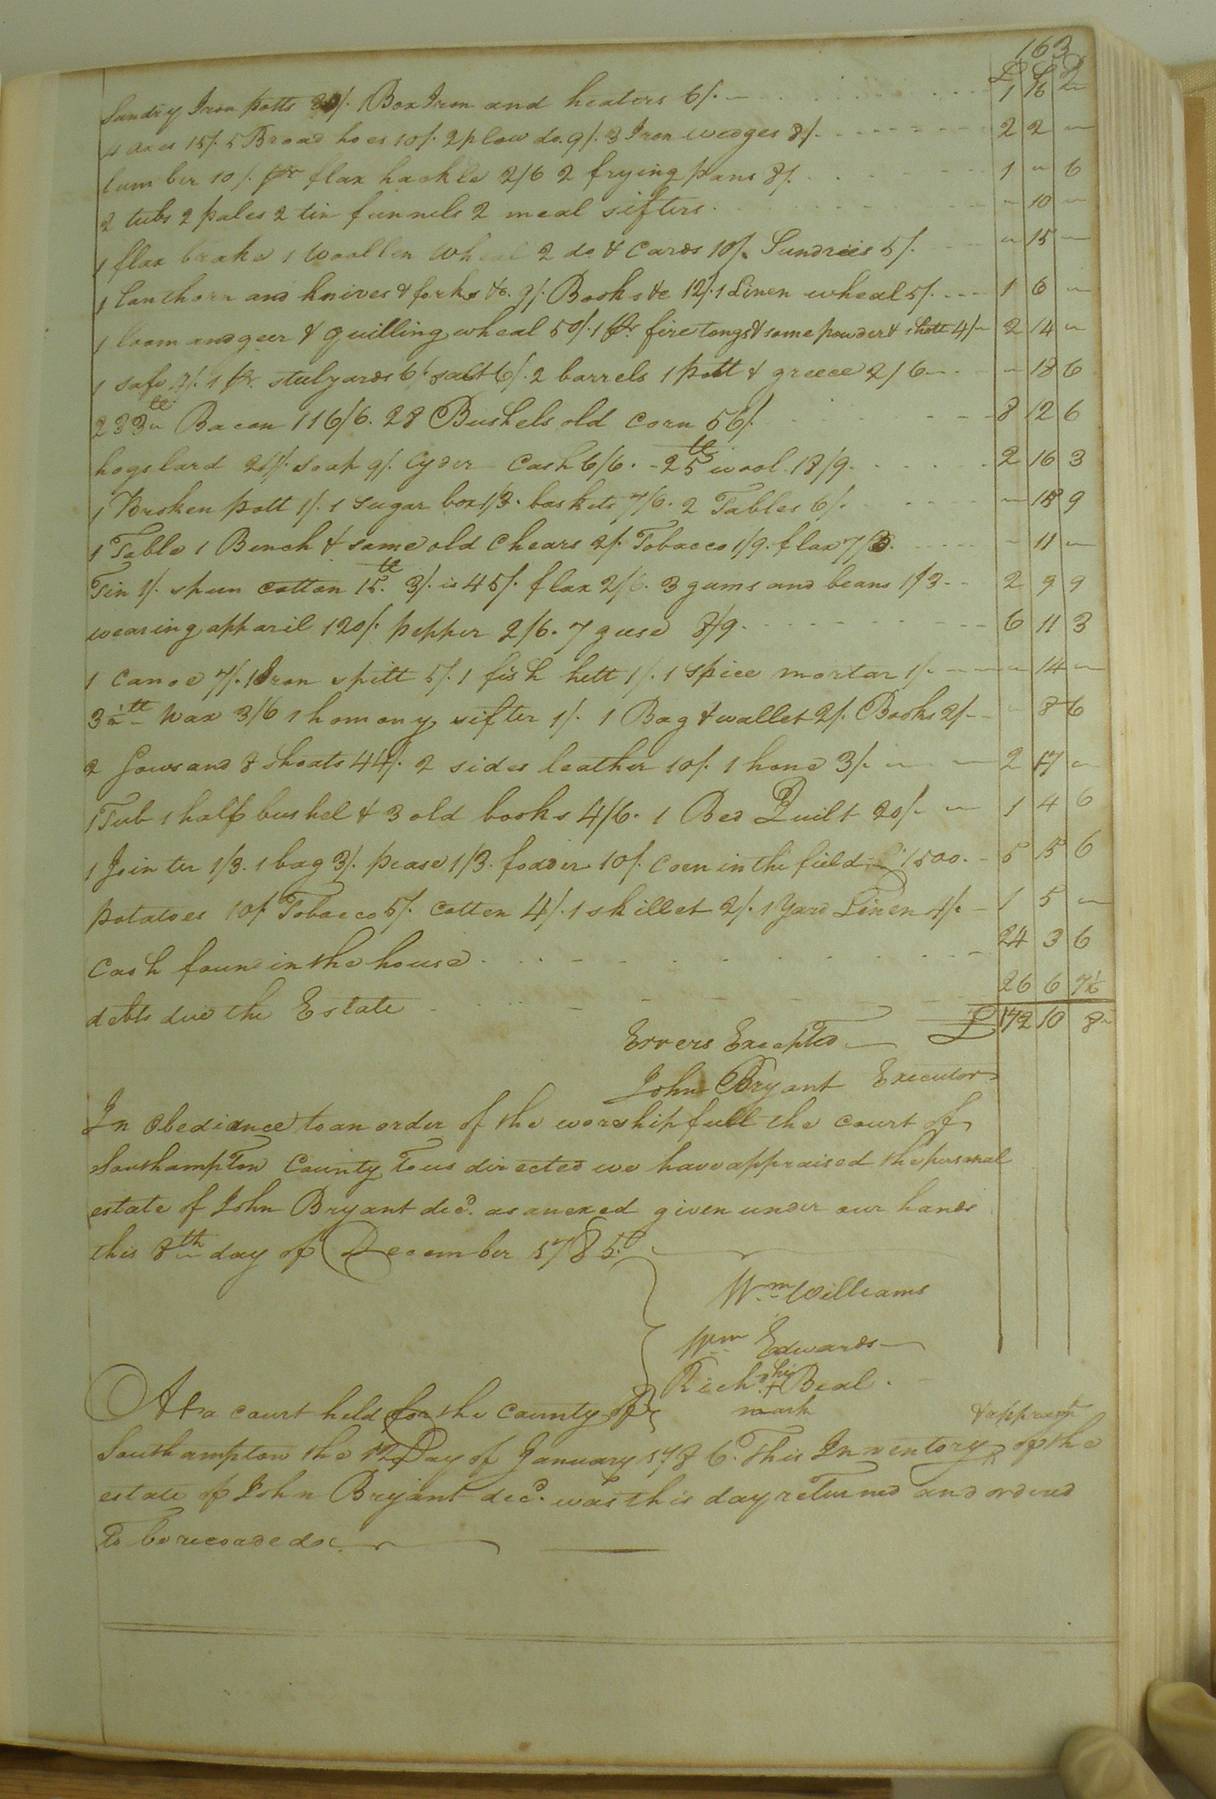 163
£ S D
Sundry Iron potts 30/. 1 Box Iron and heaters 6/. 1 16 "
4 axes 15/. 5 Broad hoes 10/. 2 plow do. 9/. 3 Iron wedges 8/. 2 2 "
lumber 10/. pr flax hackle 2/6 2 frying pans 8/. 1 " 6
2 tubs 2 pales 2 tin funnels 2 meal sifters. " 10 "
1 flax brake 1 woollen wheal 2 do & Cards 10/. Sundreis 5/. " 15 "
1 lanthorn and knives & forks &c. 9/. Books &c 12/. 1 Linen wheal 5/. 1 6 "
1 loom and geer & Quilling wheal 50/. 1 pr. fire tongs & some powder & shott 4/ 2 14 "
1 safe 4/. 1 pr. stulyards 6/ salt 6/. 2 barrels 1 pott & greece 2/6 " 18 6
233 lb Bacon 116/6. 28 Bushels old corn 56/. 8 12 6
hogs lard 21/. soap 9/. Cyder Cash 6/6. 25 lb wool 18/9. 2 16 3
1 Broken pott 1/. 1 sugar box 1/3. baskets 7/6. 2 Tables 6/. " 15 9
1 Table 1 Bench & some old Chears 2/. Tobacco 1/9. flax 7/3. " 11 "
Tin 1/. spun cotton 15 lb. 3/. is 45/. flax 2/6. 3 gums and beans 1/3 2 9 9
wearing apparil 120/. pepper 2/6. 7 guse 8/9. 6 11 3
1 Canoe 7/. 1 Iron spitt 5/. 1 fish kett 1/. 1 spice mortar 1/. " 14 "
3 lb Wax 3/6 1 homony sifter 1/. 1 Bag & wallet 2/. Books 2/. " 8 6
2 Sows and 8 shoats 44/. 2 sides leather 10/. 1 hone 3/. 2 17 "
1 Tub 1 half bushel & 3 old books 4/6. 1 Bed Quilt 20/. 1 4 6
1 Jointer 1/3. 1 bag 3/. pease 1/3. fodder 10/. Coen in the field 1500. 5 5 6
potatoes 10/. Tobacco 5/. Cotten 4/. 1 skillet 2/. 1 Yard Linen 4/. 1 5 "
Cash foun in the house. 24 3 6
debts due the Estate 26 6 7½
Errers Excepted £ 172 10 8
John Bryant Executor
In Obediance to an order of the worshipfull the court of
Southampton County to us directed we have appraised the personal
estate of John Bryant decd. as anexed given under our hands
this 8th day of December 1785.
Wm Williams
Wm Edwards
Richd his + Beal.
mark
At a court held for the County of
& appraisnt
Southampton the 12 Day of January 1786. This Inventory of the
estate of John Bryant decd. was this day returned and ordered
to be recorded.